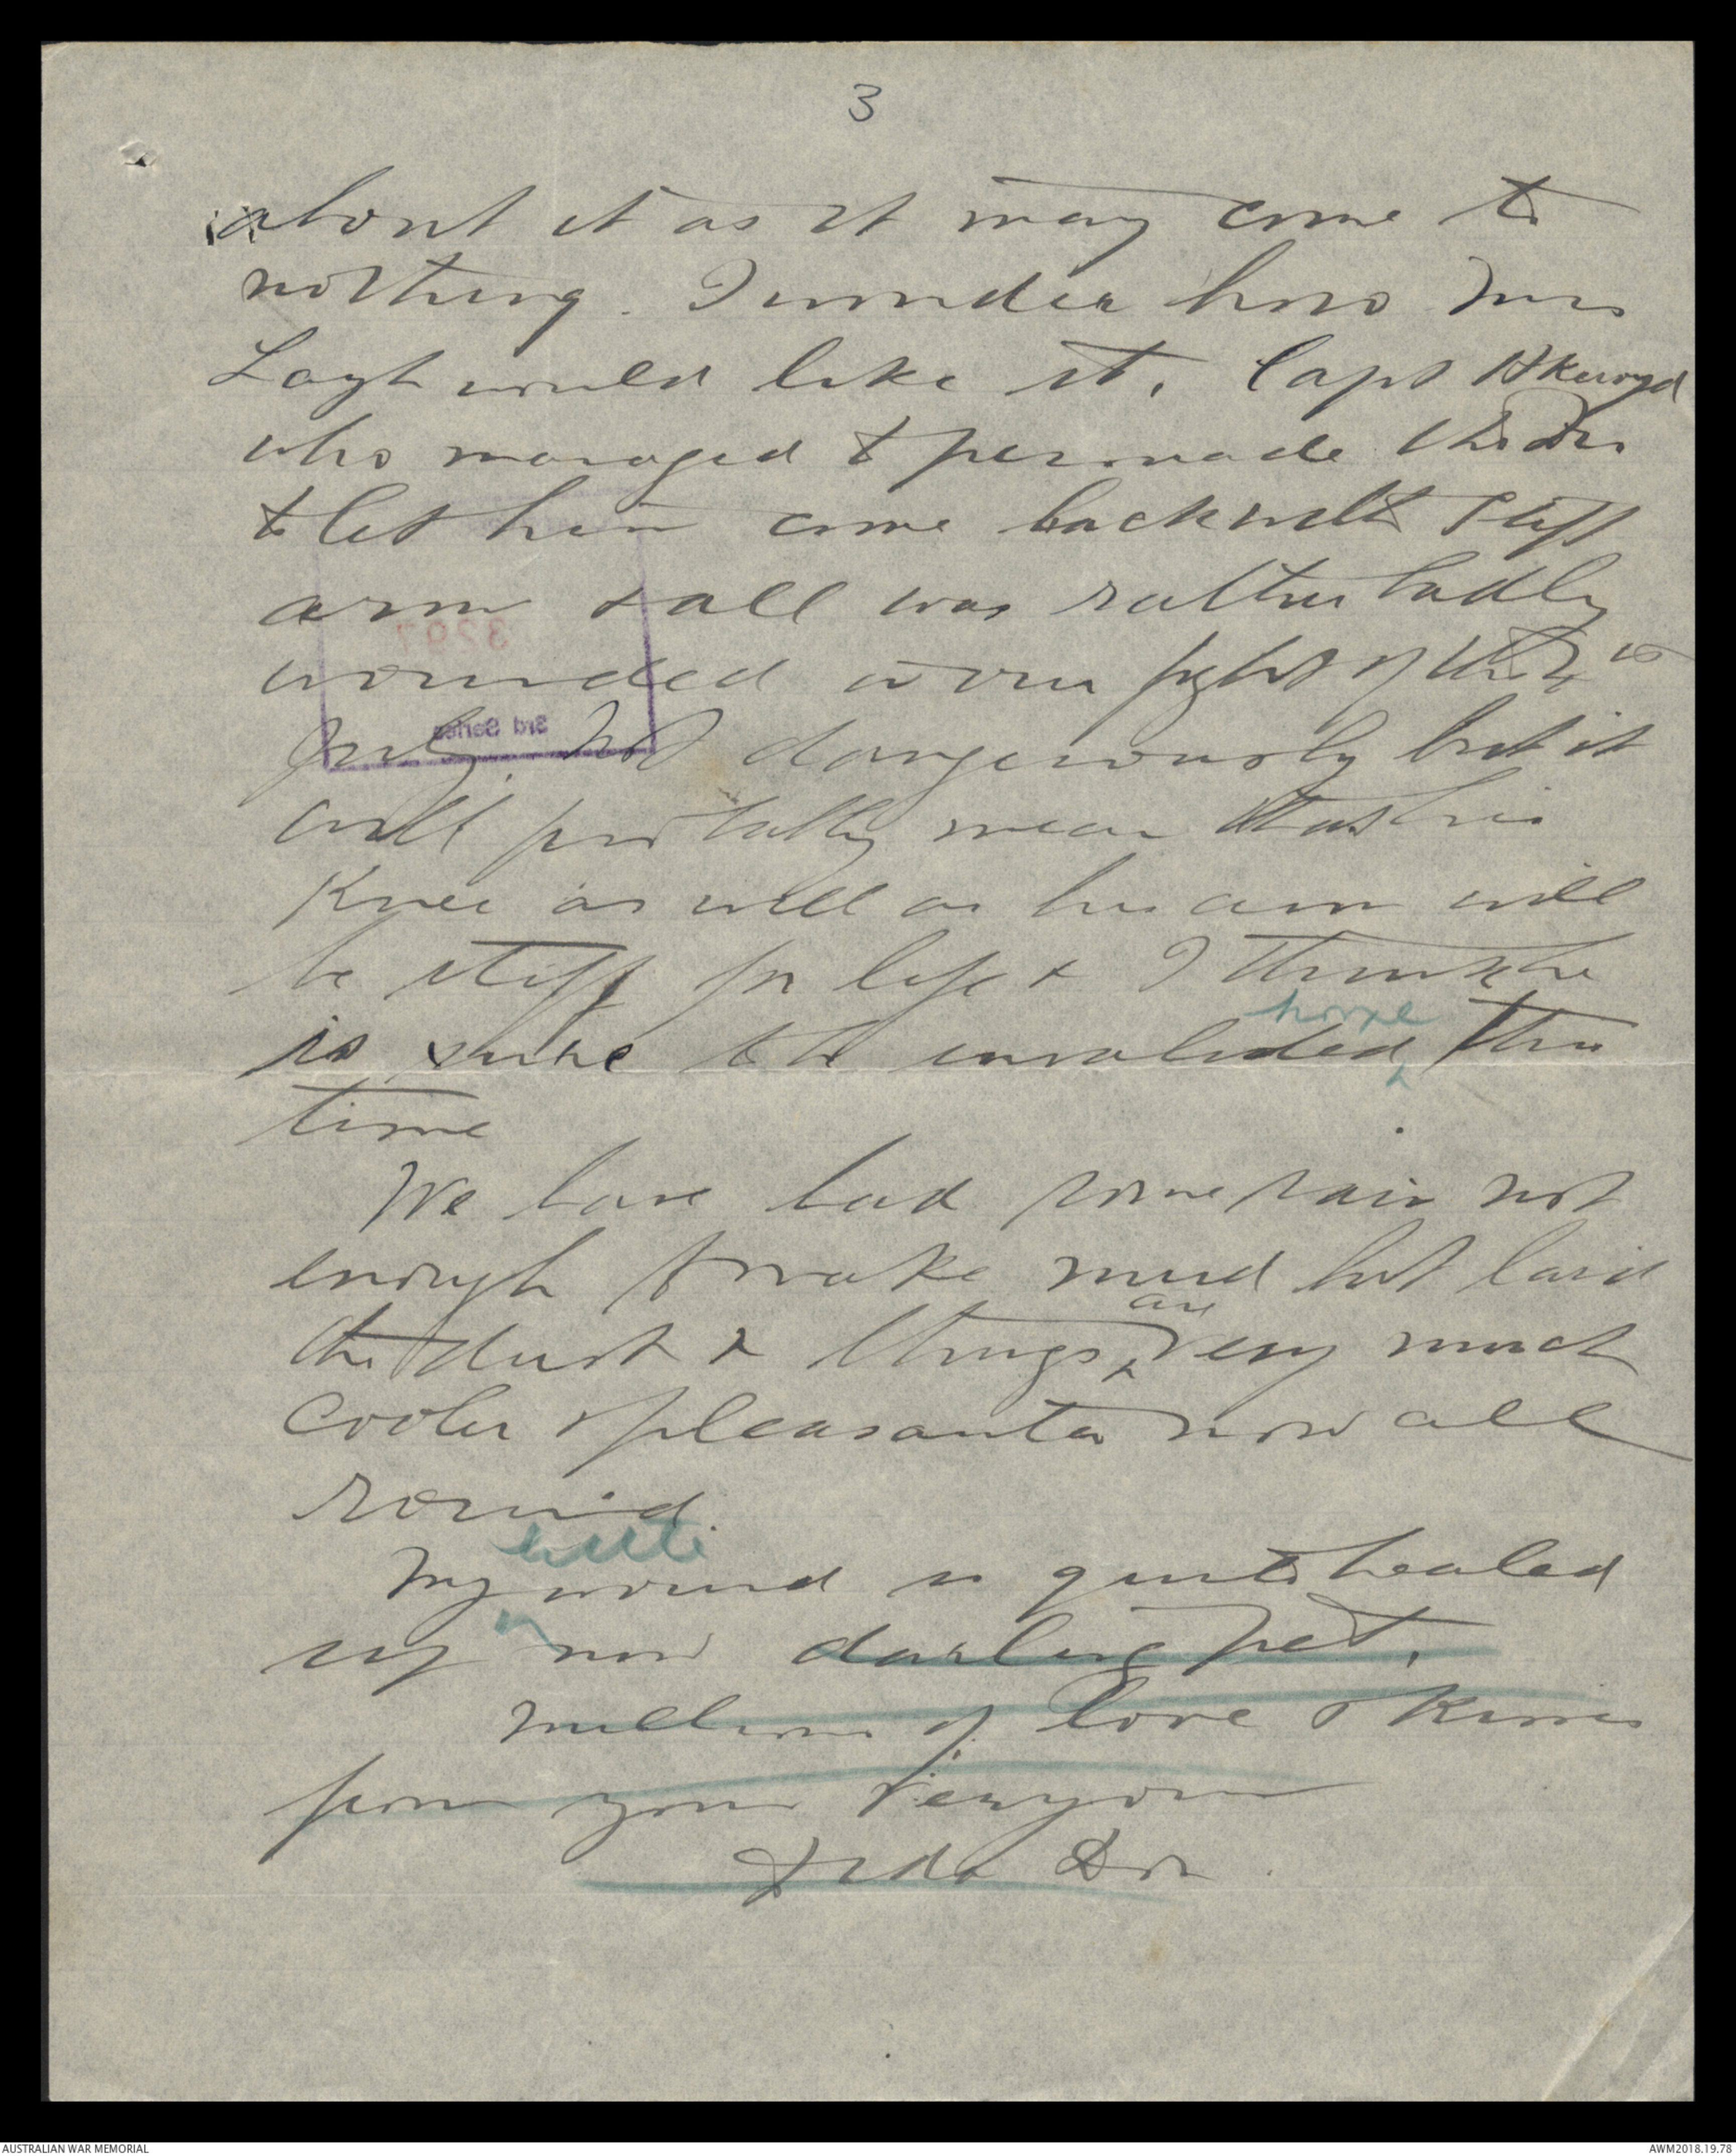 3
about it as it may come to
nothing. I wonder how Mrs
Layh would like it. Capt
who managed to persuade the Drs
to let him come back with stiff
arm & all was rather badly
wounded in our fight of the 4th
July. Not dangerously but it
will probably mean that his
Knee as well as his arm will
be stiff for life & I think he
home
is sure to be invalided this
time
We have had some rain not
enough to make mud but laid
are
the dust & things very much
cooler & pleasanter now all
round.
little
My wound is quite healed
up now darling pet.
Millions of love & kisses
from your very own
Dida Don.
3297
3rd Series
AUSTRALIAN WAR MEMORIAL
AWM2018.19.78